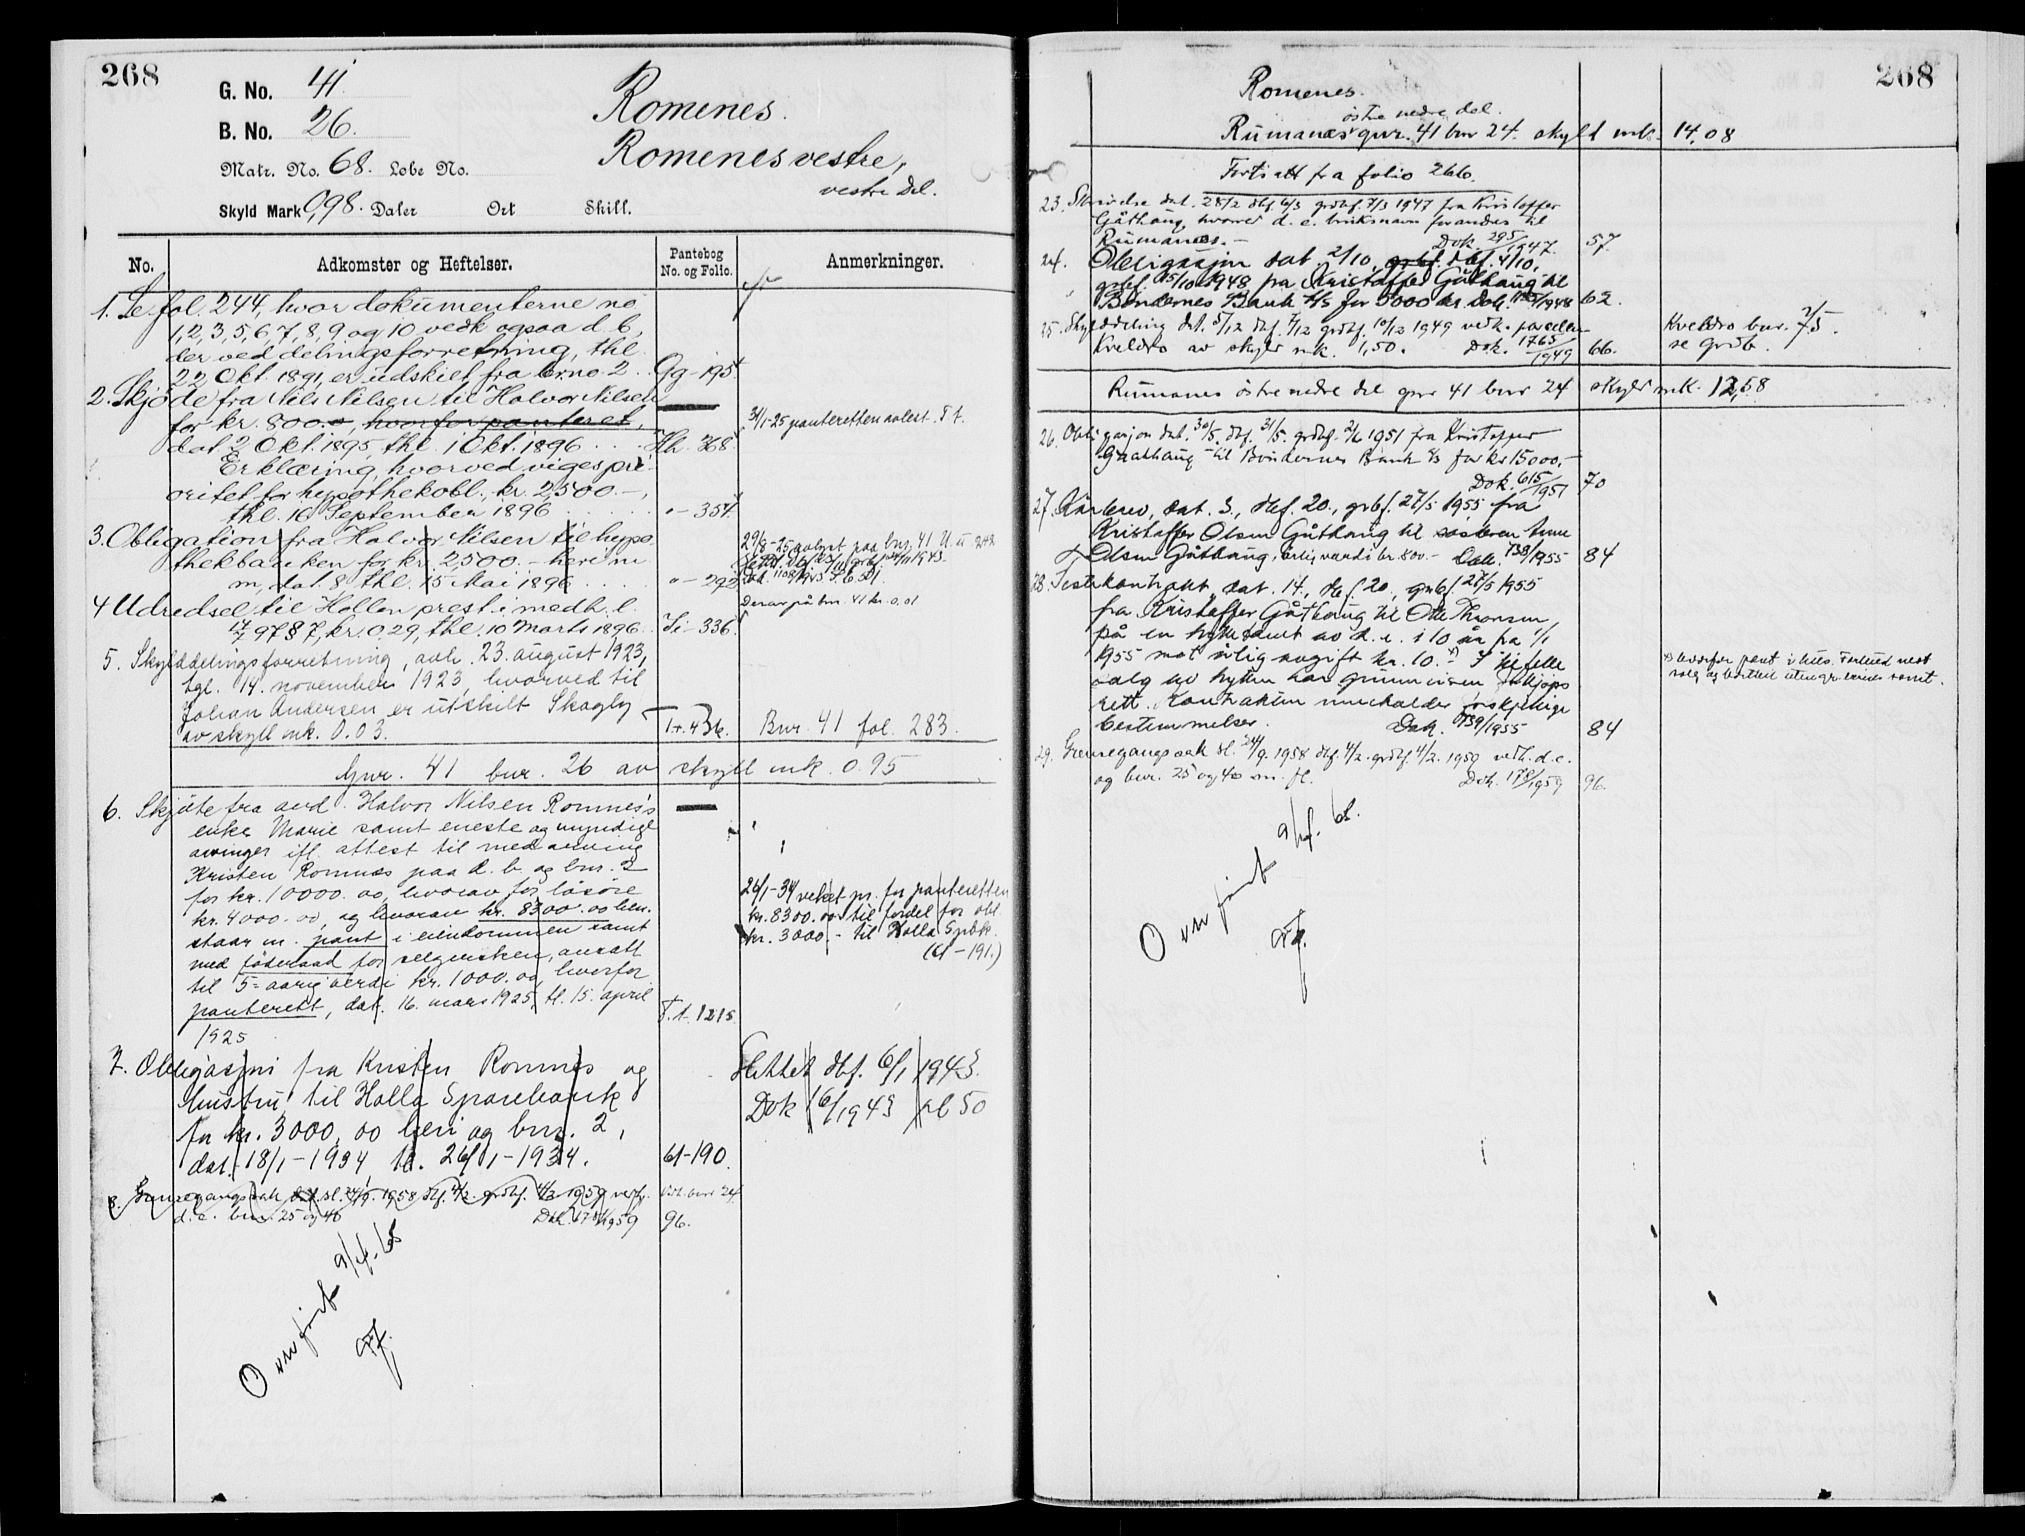 268
G. No. 41
B. No. 26.
Matr. No. 68. Løbe No.
Skyld Mark 0,98. Daler Ort Skill.
Romenes.
Romenes vestre,
vestre del.
No. Adkomster og Heftelser. Pantebog No. og Folio. Anmerkninger.
1. Se fol. 244, hvor dokumenterne no
1, 2, 3, 5, 6, 7, 8, 9 og 10 vedk. ogsaa d. b,
der ved delingsforretning, thl.
22 Okt. 1891, er udskilt fra br.no. 2. Gg-195.
2. Skjøde fra Nils Nilsen til Halvor Nilsen
for kr. 800.0, hvorfor panteret,
dat 2 Okt. 1895, thl. 1 Okt. 1896 Hh. 368.
31/1-25 panteretten avlest. T t.
Erklæring, hvorved viges pri-
oritet for hypothekobl., kr. 2,500.-,
thl. 16 September 1896 "- 354.
3. Obligation fra Halvor Nilsen til hypo-
thekbanken for kr. 2,500.- heri m
m, dat. 8 thl. 15 Mai 1896 "- 292
4 Udredsel til Hollen prest. i medh. l.
17/7 9787, kr. 0,29, thl. 10 Marts 1896. Ii-336.
Derav på bnr. 41 kr. 0.01
5. Skylddelingsforretning, avh. 23. august 1923,
tgl. 14. november 1923, hvorved til
Johan Andersen er utskilt Skogly
av skyll mk. 0.03. Bnr. 41 fol. 283.
Gnr. 41 bnr. 26 av skyll mk. 0.95
6. Skjøte fra avd. Halvor Nilsen Romnes's
enke Marie samt eneste og myndige
arvinger ifl. attest til medarving
Kristen Romnes paa d. b. og bnr. 2
for kr. 10000.00, hvorav for løsøre
kr. 4000.00, og hvorav kr. 8300.00 hen-
staar m. pant i eiendommen samt
med føderaad for selgersken, ansatt
til 5-aarig verdi kr. 1000.00, hvorfor
panterett, dat. 16. mars 1925, tl. 15. april
1925 T.t. 1215.
26/1-34 veket pr. for panteretten
kr. 8300.00 til fordel for obl.
kr. 3000.- til Holla Spbk.
(61-191.)
7. Obligasjon fra Kristen Romnes og
hustru til Holla Sparebank
for kr. 3000,00 heri og bnr. 2,
dat. 18/1-1934, tl. 26/1-1934. 61-190.
Slettet dbf. 6/1 1943.
Dok 16/1943 pl 50
8. Grensegangssak sl. 24/9. 1958 dbf. 4/2. grdbf. 4/2 1959 vedr.
d.e. bnr. 25 og 40 96.
Overført 9/4.-68
268
Romenes.
østre nedre del.
Rumanes gnr. 41 bnr 24. skyld mk. 14,08
Fortsatt fra folio 266.
23. Skrivelse dat. 28/2 dbf. 6/3 grdbf. 7/3 1947 fra Kristoffer
Gåthaug hvorved d. e. bruksnavn forandres til
Rumanes.- Dok. 295/1947. 57
24. Obligasjon dat. 2/10, dbf. 4/10,
grbf. 15/10 1948 fra Kristoffer Gåthaug til
Bøndernes Bank A/S for 5000 kr. 62.
25. Skylddeling dat. 5/12 dbf. 7/12 grdbf. 10/12 1949 vedk. parsellen
Kveldro av skyld mk. 1,50. Dok. 1765/1949 66.
Kveldro bnr. 75.
se grdb.
Rumanes østre nedre del gnr 41 bnr 24 skyld mk. 12,58
26. Obligasjon dat. 30/5. dbf. 31/5. grdbf. 2/6 1951 fra Kristoffer
Gaathaug til Bøndernes Bank A/S for kr 15000,-
Dok. 615/1951 70
27. Kårbrev, dat. 3., dbf. 20., grbf. 27/5 1955 fra
Kristoffer Olsen Gåthaug til søsteren Anne
Olsen Gåthaug, årlig verdi kr. 800.- Dok. 738/1955 84
28. Festekontrakt, dat. 14., dbf. 20, grbf. 27/5 1955
fra Kristoffer Gåthaug til Otto Thorsen
på en hyttetomt av d. e. i 10 år fra 1/1
1955 mot årlig avgift kr. 10.- x) I tilfelle
salg av hytten har grunneieren innkjøps
rett. Kontrakten inneholder forskjellige
bestemmelser. Dok. 739/1955 84
x) hvorfor pant i hus. Forbud mot
salg og bortleie uten gr. eiers samt.
29. Grensegangssak sl. 24/9. 1958 dbf. 4/2. grdbf. 4/2. 1959 vedk. d.e.
og bnr. 25 og 40 m. fl. Dok. 178/1959 96.
Overført 9/4.-68.